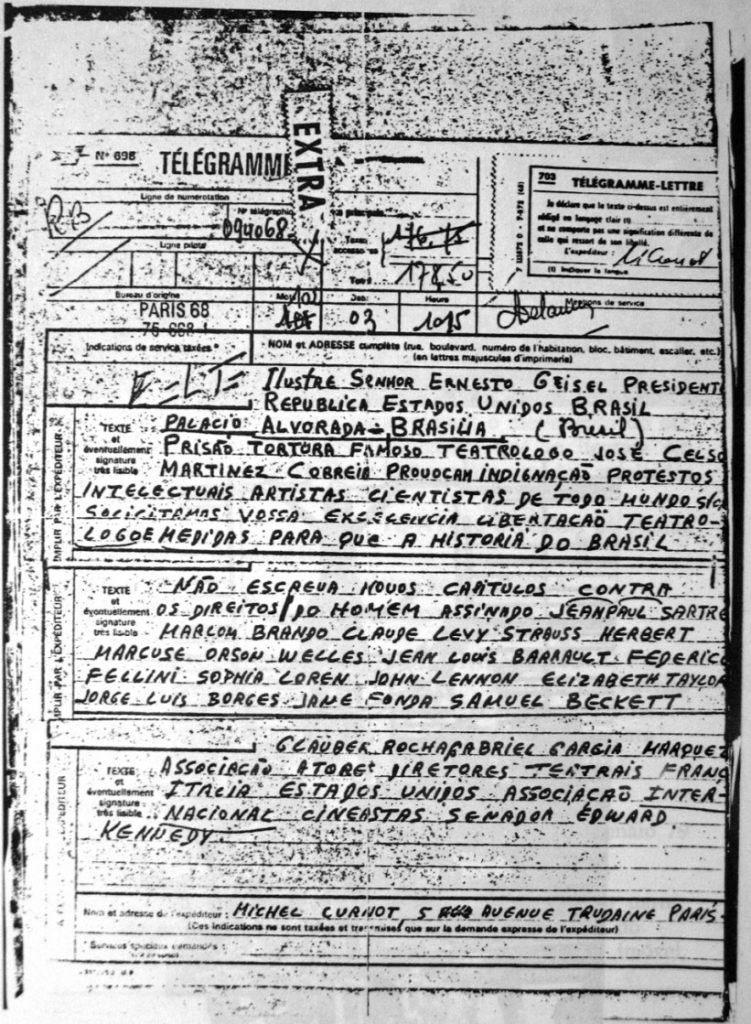 EXTRA
N° 698 TÉLÉGRAMME
Ligne de numérotation
N° télégraphique
094068
Taxe principale
Taxes accessoires
176.75
Total
178.50
Ligne pilote
703 TÉLÉGRAMME-LETTRE
Je déclare que le texte ci-dessus est entièrement
rédigé en langage clair (1)
et ne comporte pas une signification différente de
celle qui ressort de son libellé.
L'expéditeur :
(1) Indiquer la langue
Bureau d'origine
PARIS 68
Mots
Date
03
Heure
1015
Mentions de service
Indications de service taxées
NOM et ADRESSE complète (rue, boulevard, numéro de l'habitation, bloc, bâtiment, escalier, etc.)
(en lettres majuscules d'imprimerie)
=LT= ILUSTRE SENHOR ERNESTO GEISEL PRESIDENT
REPUBLICA ESTADOS UNIDOS BRASIL
PALACIO ALVORADA - BRASILIA (Bresil)
TEXTE
et
éventuellement
signature
très lisible
PRISÃO TORTURA FAMOSO TEATROLOGO JOSÉ CELSO
MARTINEZ CORREIA PROVOCAM INDIGNAÇÃO PROTESTOS
INTELECTUAIS ARTISTAS CIENTISTAS DE TODO MUNDO
SOLICITAMOS VOSSA EXCELENCIA LIBERTAÇÃO TEATRO-
LOGO E MEDIDAS PARA QUE A HISTORIA DO BRASIL
TEXTE
et
éventuellement
signature
très lisible
NÃO ESCREVA NOVOS CAPITULOS CONTRA
OS DIREITOS DO HOMEM ASSINADO JEANPAUL SARTRE
MARLON BRANDO CLAUDE LEVY STRAUSS HERBERT
MARCUSE ORSON WELLES JEAN LOUIS BARRAULT FEDERICO
FELLINI SOPHIA LOREN JOHN LENNON ELIZABETH TAYLOR
JORGE LUIS BORGES JANE FONDA SAMUEL BECKETT
TEXTE
et
éventuellement
signature
très lisible
GLAUBER ROCHA GABRIEL GARCIA MARQUEZ
ASSOCIAÇÃO ATORES DIRETORES TEATRAIS FRANÇ
ITALIA ESTADOS UNIDOS ASSOCIAÇÃO INTER-
NACIONAL CINEASTAS SENADOR EDWARD
KENNEDY
Nom et adresse de l'expéditeur : MICHEL CURNOT, 5 AVENUE TRUDAINE PARIS
(Ces indications ne sont taxées et transmises que sur la demande expresse de l'expéditeur)
Services spéciaux demandés :